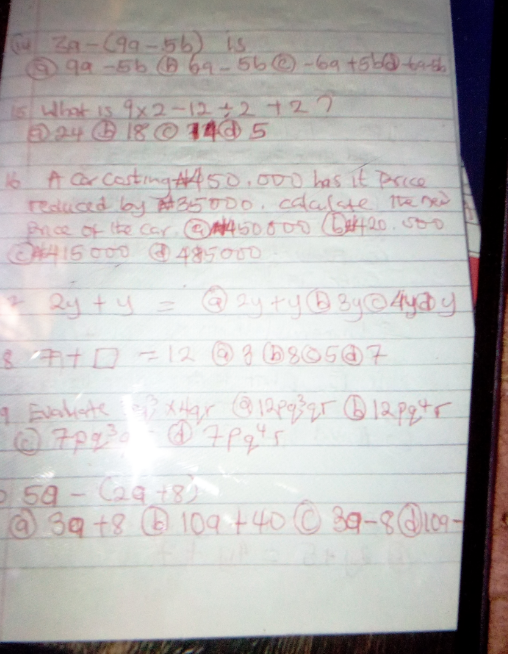 3a - (9a - 5b) is
(a) 9a - 5b (b) 6a - 5b (c) -6a + 5b (d) -6a-5b
15 What is 9 x 2 - 12 ÷ 2 + 2 ?
(a) 24 (b) 18 (c) 14 (d) 5
16 A car costing ₦450.000 has it price
reduced by ₦35000. calculate the new
price of the car. (a) ₦450000 (b) ₦420.500
(c) ₦415000 (d) 485000
2y + y = (a) 2y + y (b) 3y (c) 4y (d) y
8 7 + □ = 12 (a) 3 (b) 8 (c) 5 (d) 7
9 Evaluate q³ x 4qr (a) 12pq³qr (b) 12pq⁴r
(c) 7pq³ (d) 7pq⁴r
5a - (2a + 8)
(a) 3a + 8 (b) 10a + 40 (c) 3a - 8 (d) 10a -